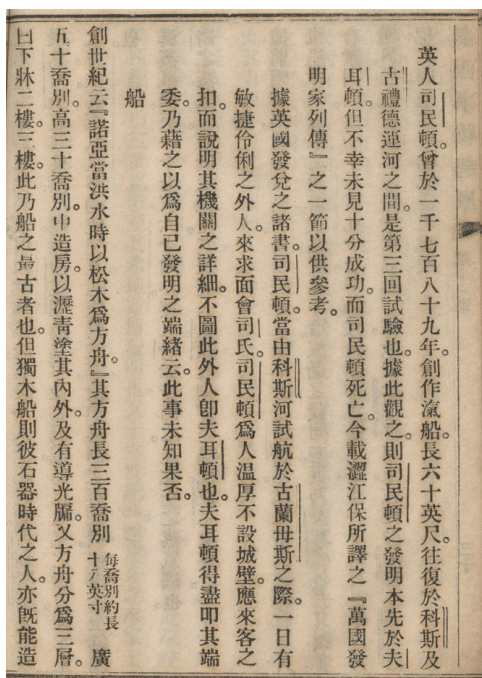 英人司民頓。曾於一千七百八十九年。創作滊船長六十英尺。往復於科斯及
古禮德運河之間。是第三回試驗也。據此觀之。則司民頓之發明本先於夫
耳頓。但不幸未見十分成功。而司民頓死亡。今載澀江保所譯之『萬國發
明家列傳』之一節以供參考。
據英國發兌之諸書。司民頓。當由科斯河試航於古蘭毋斯之際。一日有
敏捷伶俐之外人。來求面會司氏。司民頓爲人温厚不設城壁。應來客之
扣。而說明其機關之詳細。不圖此外人卽夫耳頓也。夫耳頓得盡叩其端
委。乃藉之以爲自己發明之端緒云。此事未知果否。
船
創世紀云『諾亞當洪水時以松木爲方舟。』其方舟長三百喬別每喬別約長十八英寸廣
五十喬別。高三十喬別。中造房。以瀝靑塗其內外。及有導光牖。又方舟分爲三層。
曰下牀二樓。三樓。此乃船之最古者也。但獨木船則彼石器時代之人。亦旣能造